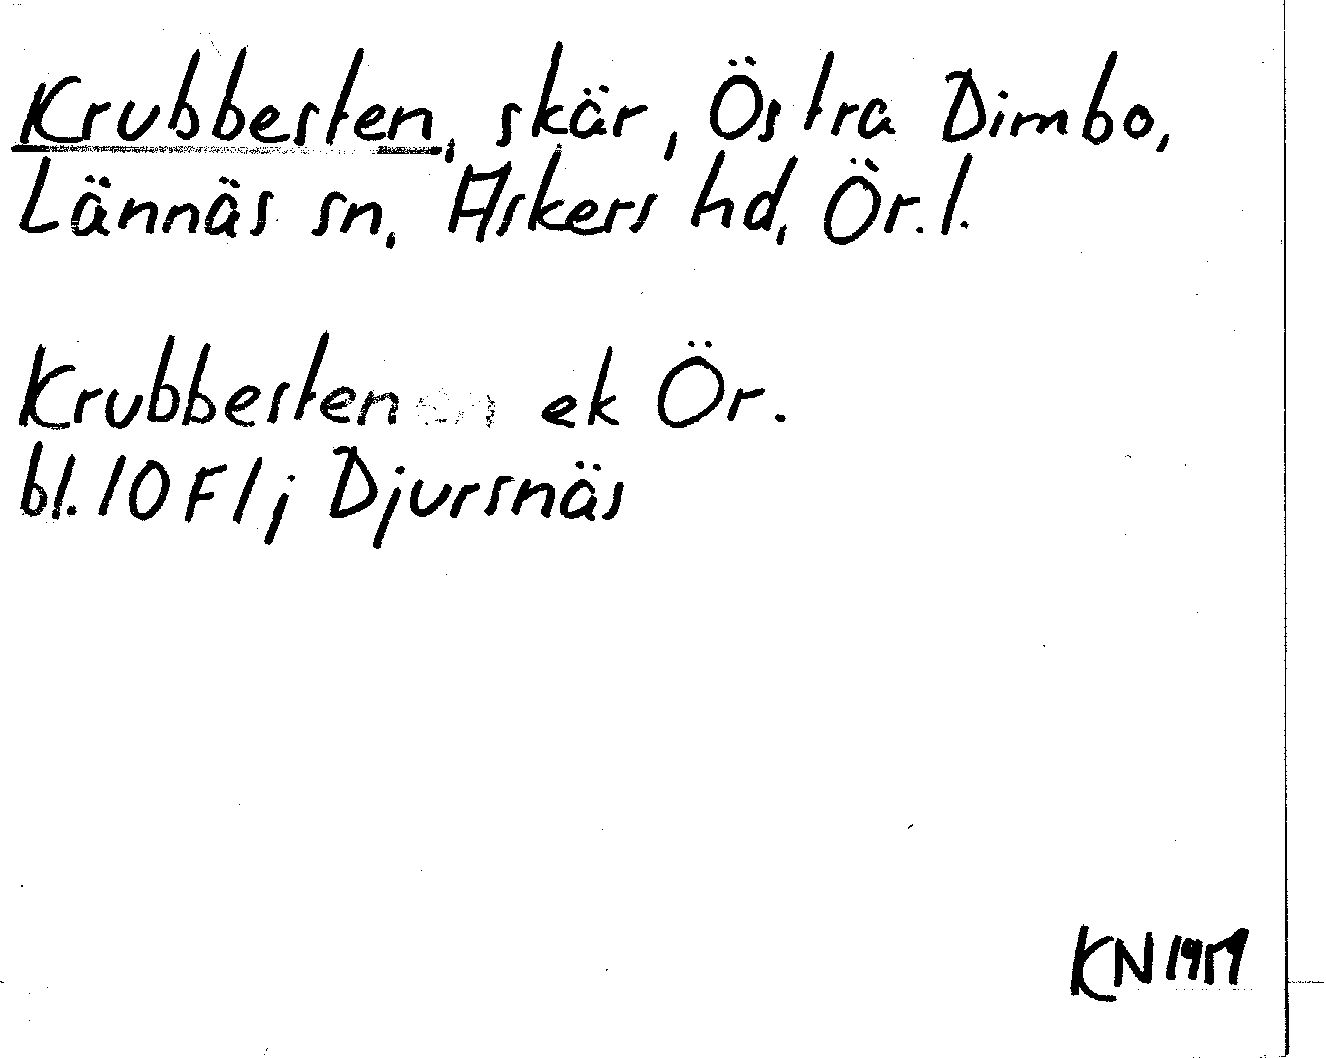 Krubbesten, skär, Östra Dimbo,
Lännäs sn, Askers hd, Ör. l.
Krubbesten ek Ör.
bl. 10 F 1 j Djursnäs
KN